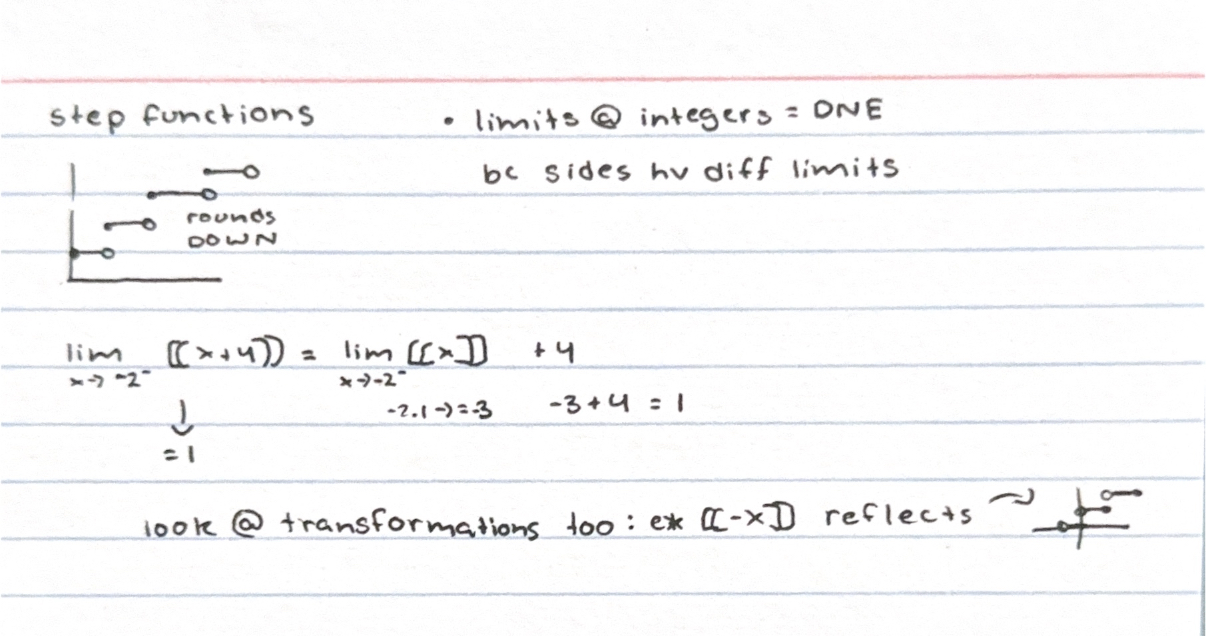 step functions
• limits @ integers = DNE
bc sides hv diff limits
rounds
DOWN
lim [[x+4)) = lim [[x]] +4
x→-2⁻ x→-2⁻
-2.1→=-3 -3+4 = 1
↓
=1
look @ transformations too: ex [[-x]] reflects →